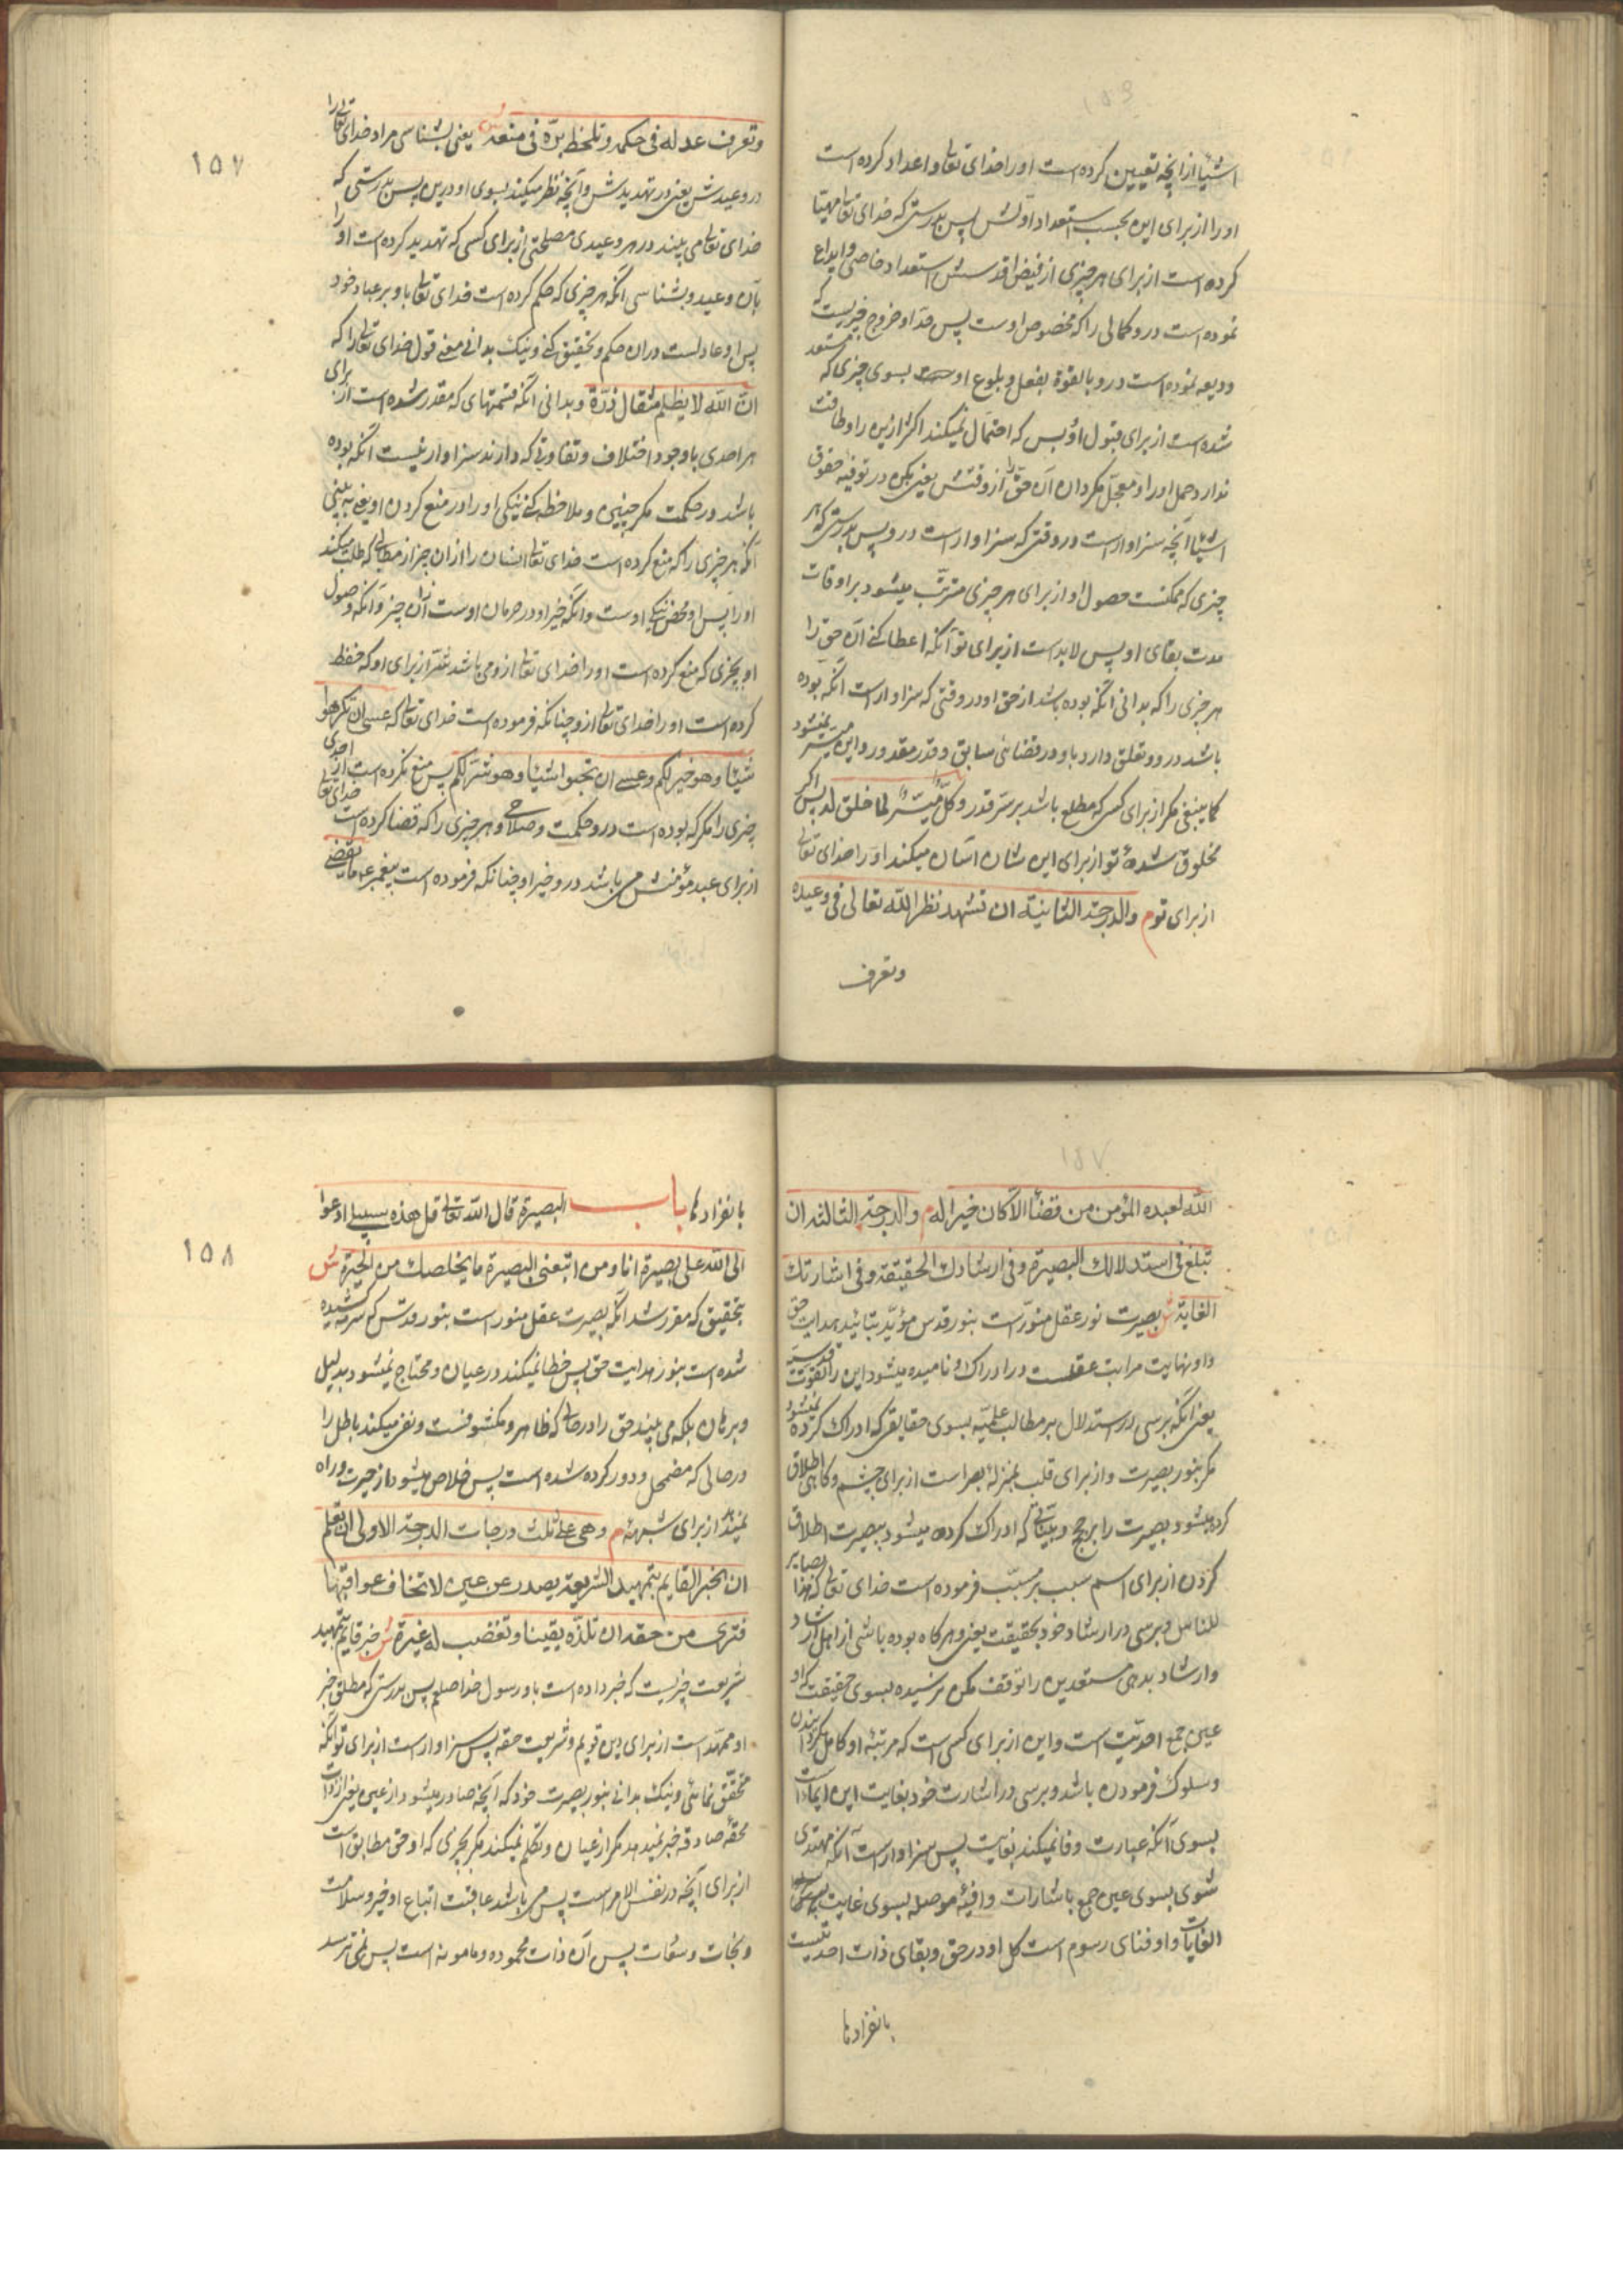 اشیا از انچه تعیین کرده است او را خدای تعالی و اعداد کرده است
او را از برای این بحسب استعداد اولش پس بدرستی که خدای تعالی مهیا
کرده است از برای هر چیزی از فیض اقدسش استعداد خاصی و ایداع
نموده است درو کمالی را که مخصوص اوست پس قدر او خروج چیزیست که
ودیعه نموده است درو بالقوة بفعل و بلوع اوست بسوی چیزی که مستعد
شده است از برای قبول او پس که احتمال نمیکند اکثر ازین را و طاقت
ندارد حمل او را و معجل مگردان آن حق را از وقتش یعنی مکن در توفیه حقوق
اشیا آنچه سزاوار است در وقتی که سزاوار است درو پس بدرستی که هر
چیزی که ممکنست حصول او از برای هر چیزی مترتب میشود بر اوقات
مدت بقای او پس لابد است از برای تو آنکه اعطا کنی آن حق را
هر چیزی را که بدانی آنکه بوده باشد از حق او در وقتی که سزاوار است آنکه بوده
باشد درو و تعلق دارد باو در قضائی سابق و قدر مقدور و این میسر نمیشود
کما ینبغی مگر از برای کسی که مطلع باشد بر سر قدر و کل میسر لما خلق له پس اگر
مخلوق شدهٔ تو از برای این شان اسان میکند او را خدای تعالی
از برای تو م والدرجة الثانية ان تشهد نظر الله تعالى فی وعیده
وتعرف
۱۵۷
وتعرف عدله فی حکمه وتلحظ برّه فی منعه ش یعنی بشناسی مراد خدای تعالی را
در وعیدش یعنی در تهدیدش و آنچه نظر میکند بسوی او درین پس بدرستی که
خدای تعالی می بیند در هر وعیدی مصلحتی از برای کسی که تهدید کرده است او را
بآن وعید و بشناسی آنکه هر چیزی که حکم کرده است خدای تعالی باو بر عباد خود
پس او عادلست دران حکم و تحقیق کنی و نیک بدانی معنی قول خدای تعالی را که
ان الله لا یظلم مثقال ذرّة و بدانی آنکه قسمتهای که مقدر شده است از برای
هر احدی باوجود اختلاف و تفاوتی که دارند سزاوار نیست آنکه بوده
باشد در حکمت مگر چنین و ملاحظه کنی نیکی او را در منع کردن او یعنی ببینی
آنکه هر چیزی را که منع کرده است خدای تعالی انسان را از ان چیز از مطالبی که طلب میکند
او را پس او محض نیکی اوست و آنکه خیر او در حرمان اوست ازان چیز و آنکه وصول
او بچیزی که منع کرده است او را خدای تعالی ازو می باشد شر از برای او که حفظ
کرده است او را خدای تعالی ازو چنانکه فرموده است خدای تعالی که عسی ان تکرهوا
شیئا وهو خیر لکم وعسی ان تحبوا شیئا وهو شر لکم پس منع نکرده است از احدی
چیزی را مگر که بوده است درو حکمت و صلاحی و هر چیزی را که قضا کرده است خدای تعالی
از برای عبد مؤمنش می باشد درو خیر او چنانکه فرموده است پیغمبر ع ما یقضی
الله لعبده المؤمن من قضاء الا کان خیرا له م والدرجة الثالثة ان
تبلغ فی استدلالك البصیرة وفی ارشادك الحقیقة وفی اشارتك
الغایة ش بصیرت نور عقل منوّر است بنور قدس مؤیّد بتائید هدایت حق
و او نهایت مراتب عقلست در ادراک و نامیده میشود این را بقوت قدسیه
یعنی آنکه برسی در استدلال بر مطالب علمیه بسوی حقایقی که ادراک کرده نمیشود
مگر بنور بصیرت و از برای قلب بمنزلهٔ بصر است از برای چشم و گاهی اطلاق
کرده میشود بصیرت را بر حجج و بیّناتی که ادراک کرده میشود ببصیرت اطلاق
کردن از برای اسم سبب بر مسبّب فرموده است خدای تعالی که هذا بصایر
للناس و برسی در ارشاد خود بحقیقت یعنی هر گاه بوده باشی از اهل ارشاد
و ارشاد بدهی مستعدین را توقف مکن نرسیده بسوی حقیقت که او
عین جمع احدیّت است و این از برای کسی است که مرتبهٔ او کامل گردانیدن
و سلوک فرمودن باشد و برسی در اشارت خود بغایت این ایماست
بسوی آنکه عبارت وفا نمیکند بغایت پس سزاوار است آنکه مهتدی
شوی بسوی عین جمع باشارات وافیهٔ موصله بسوی غایت
الغایات و او فنای رسوم است کل او در حق و بقای ذات احدیتست
بانفرادها
۱۵۸
بانفرادها باب البصیرة قال الله تعالی قل هذه سبیلی ادعوا
الی الله علی بصیرة انا ومن اتبعنی البصیرة ما یخلصك من الحیرة ش
بتحقیق که مقرر شد آنکه بصیرت عقل منور است بنور قدس که سرمه کشیده
شده است بنور هدایت حق پس خطا نمیکند در عیان و محتاج نمیشود بدلیل
و برهان بلکه می بیند حق را در حالی که ظاهر و مکشوفست و نفی میکند باطل را
در حالی که مضمحل و دور کرده شده است پس خلاص میشود از حیرت و راه
نمیدهد از برای شبهه م وهی علی ثلث درجات الدرجة الاولی ان تعلم
ان الخبر القایم بتمهید الشریعة یصدر عن عین لا تخاف عواقبها
فتری من حقه ان تلذه یقینا وتغضب له غیرة ش خبر قایم بتمهید
شریعت چیزیست که خبر داده است باو رسول خدا صلعم پس بدرستی که مطلق خبر
او ممهّد است از برای دین قویم و شریعت حقه پس سزاوار است از برای تو آنکه
محقق نمائی و نیک بدانی بنور بصیرت خود که آنچه صادر میشود از عین یعنی از ذات
محقهٔ صادقه خبر نمیدهد مگر از عیان و تکلم نمیکند مگر بچیزی که او حق مطابق است
از برای آنچه در نفس الامر است پس می باشد عاقبت اتباع او خیر و سلامت
و نجات و سعادت پس آن ذات محموده و مامونه است پس نمی ترسد